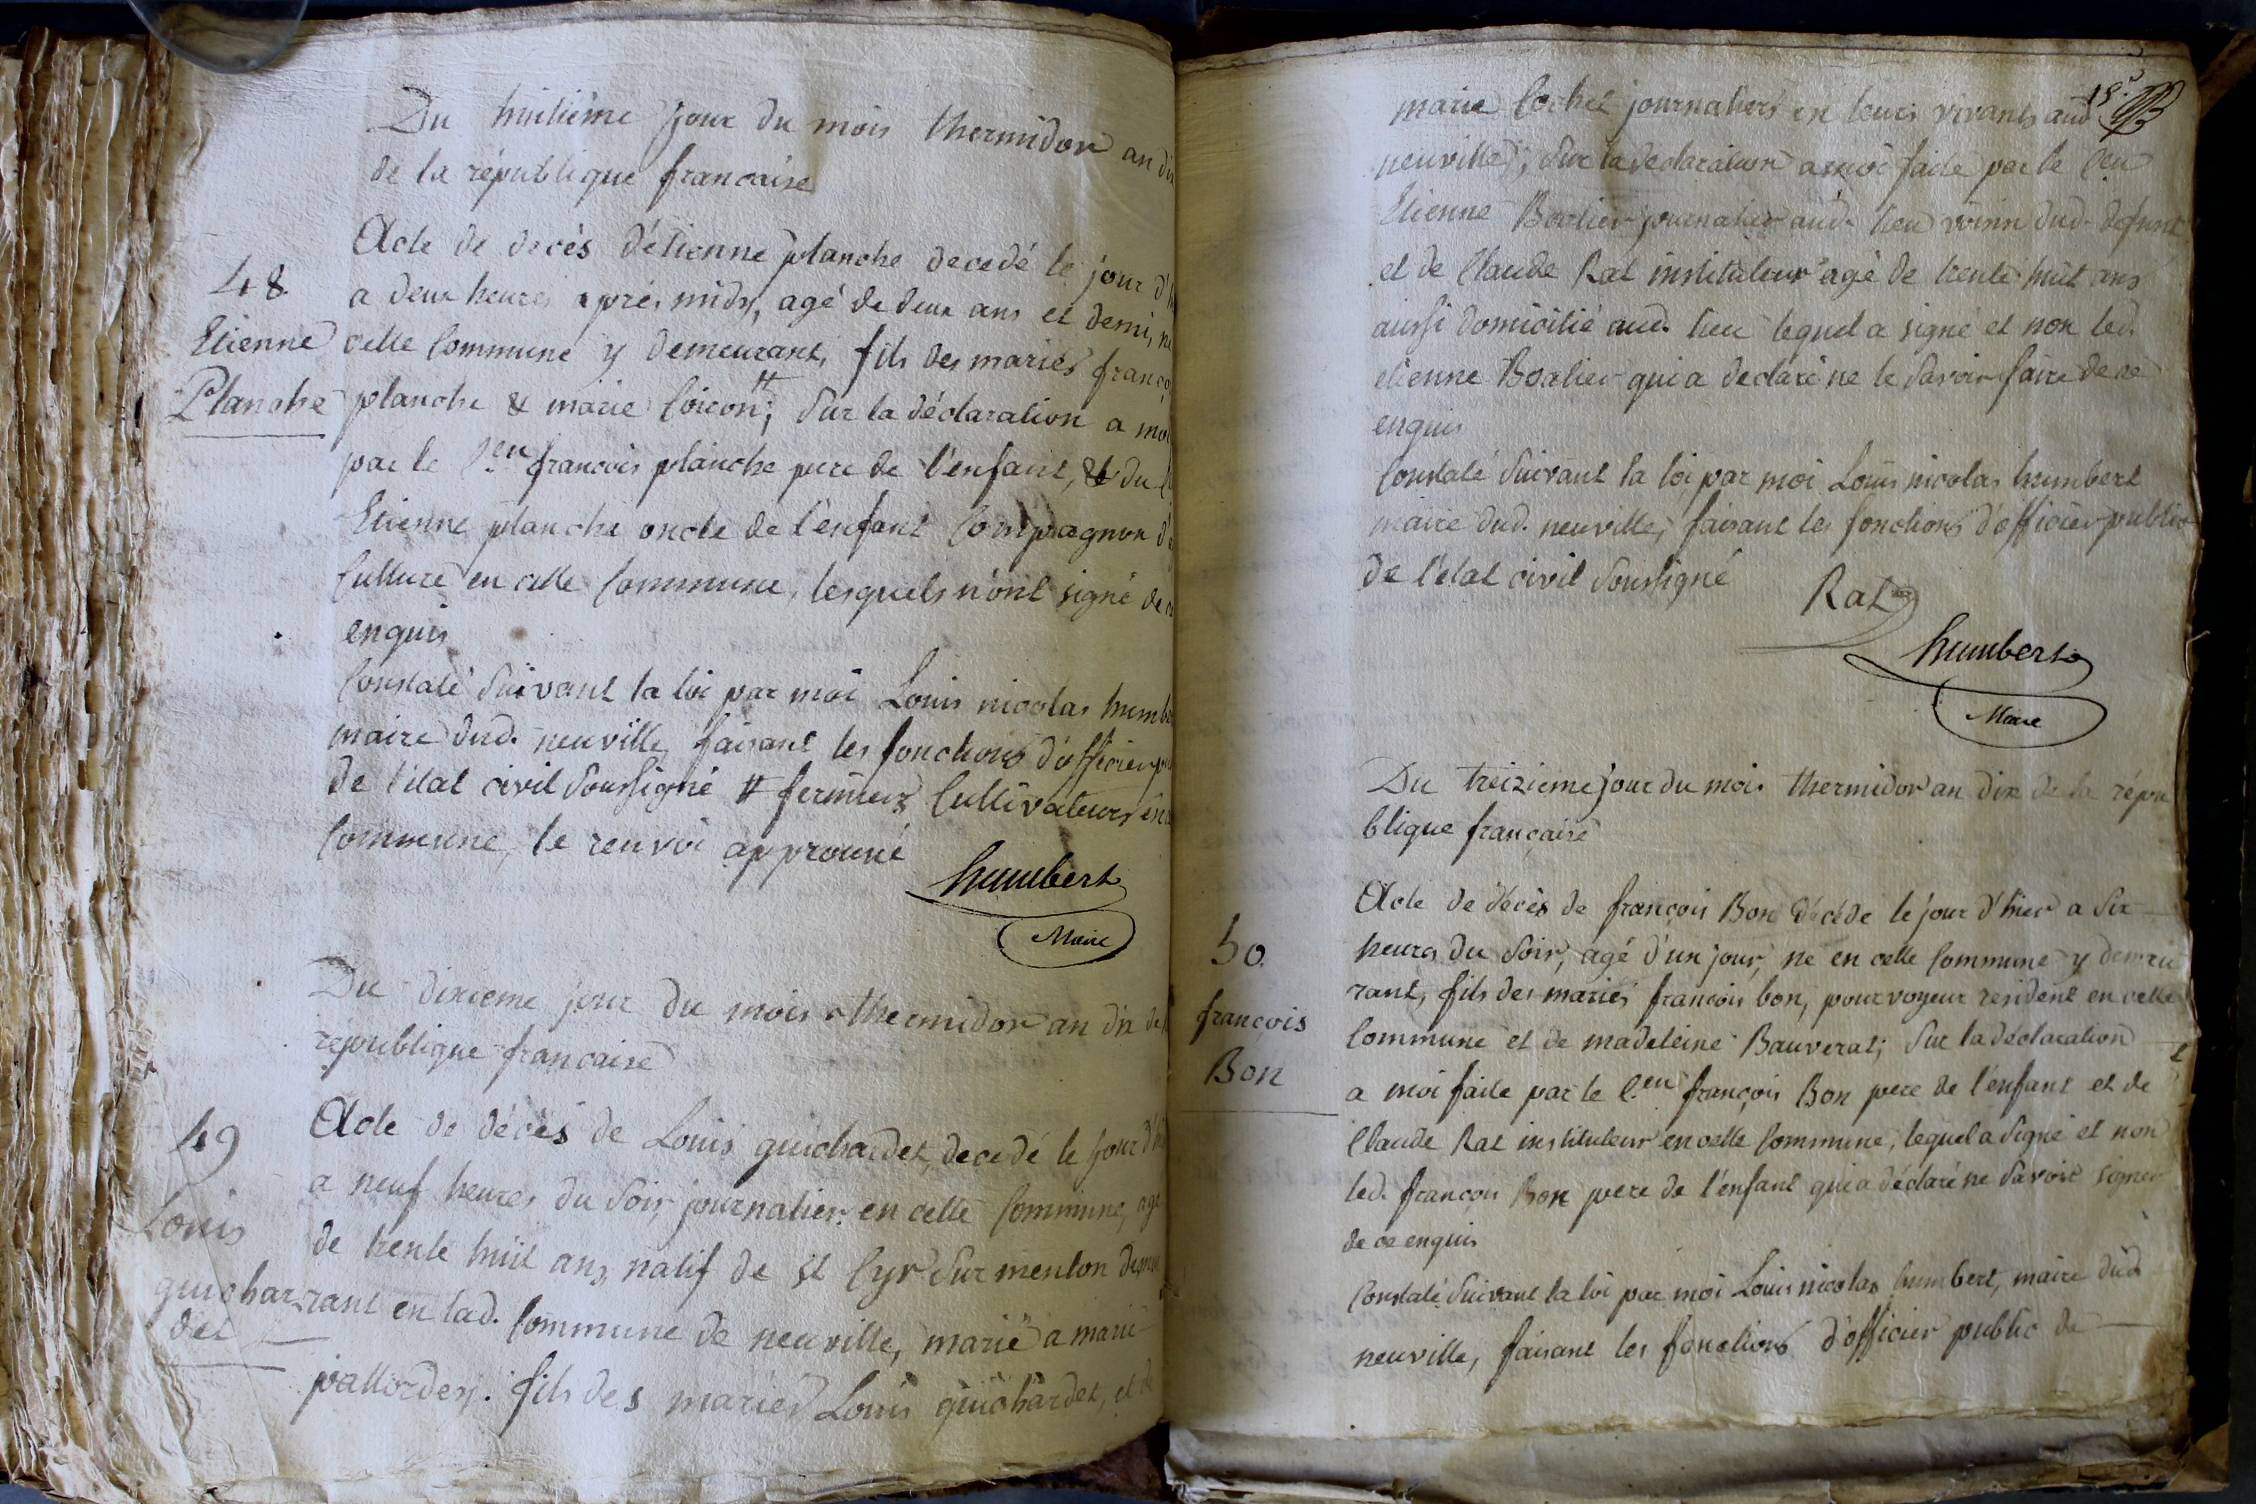 Du huitième jour du mois thermidor an dix
de la république française
Acte de decès d'étienne planche decedé le jour d'h
48.
a deux heures après midy, agé de deux ans et demi, né
Etienne
cette Commune y demeurant, fils des mariés franço
Planche
planche & marie Coicon #; Sur la déclaration a moi
par le Cen françois planche pere de l'enfant, & du C
Etienne planche oncle de l'enfant Compagnon d'a
Culture en cette Commune, lesquels n'ont signé de ce
enquis
Constaté Suivant la loi par moi Louis nicolas humbe
maire dud. neuville, faisant les fonctions d'officier pu
de l'état civil Soussigné # fermiers Cultivateurs en c
Commune, le renvoi approuvé
humbert
Maire
Du dixieme jour du mois thermidor an dix de l
république française
49
Acte de décès de Louis guichardet, decedé le jour d'hi
a neuf heures du Soir, journalier en cette Commune, agé
Louis
de trente huit ans, natif de St Cyr Sur menton demeu
guichar
det
rant en lad. Commune de neuville, marié a marie
pallordey. fils des mariés Louis guichardet, et de
15.
marie Cochet journaliers en leurs vivants aud
neuville; Sur la declaration a moi faite par le Cen
Etienne Boalier journalier aud. lieu voisin dud. defunt
et de Claude Rat instituteur agé de trente huit ans
aussi domicilié aud. lieu lequel a signé et non led.
etienne Boalier qui a declaré ne le Savoir faire de ce
enquis
Constaté Suivant la loi par moi Louis nicolas humbert
maire dud. neuville, faisant les fonctions d'officier public
de l'état civil Soussigné
Rat
humbert
Maire
Du treizieme jour du mois thermidor an dix de la répu
blique française
Acte de décès de françois Bon décédé le jour d'hier a Six
50.
heures du Soir, agé d'un jour, né en cette Commune y demeu
françois
rant, fils des mariés françois bon, pourvoyeur resident en cette
Bon
Commune et de madeleine Bauverat; Sur la déclaration
a moi faite par le Cen françois Bon pere de l'enfant et de
Claude Rat instituteur en cette Commune, lequel a Signé et non
led. françois Bon pere de l'enfant qui a déclaré ne Savoir signer
de ce enquis
Constaté Suivant la loi par moi Louis nicolas humbert, maire dud.
neuville, faisant les fonctions d'officier public de